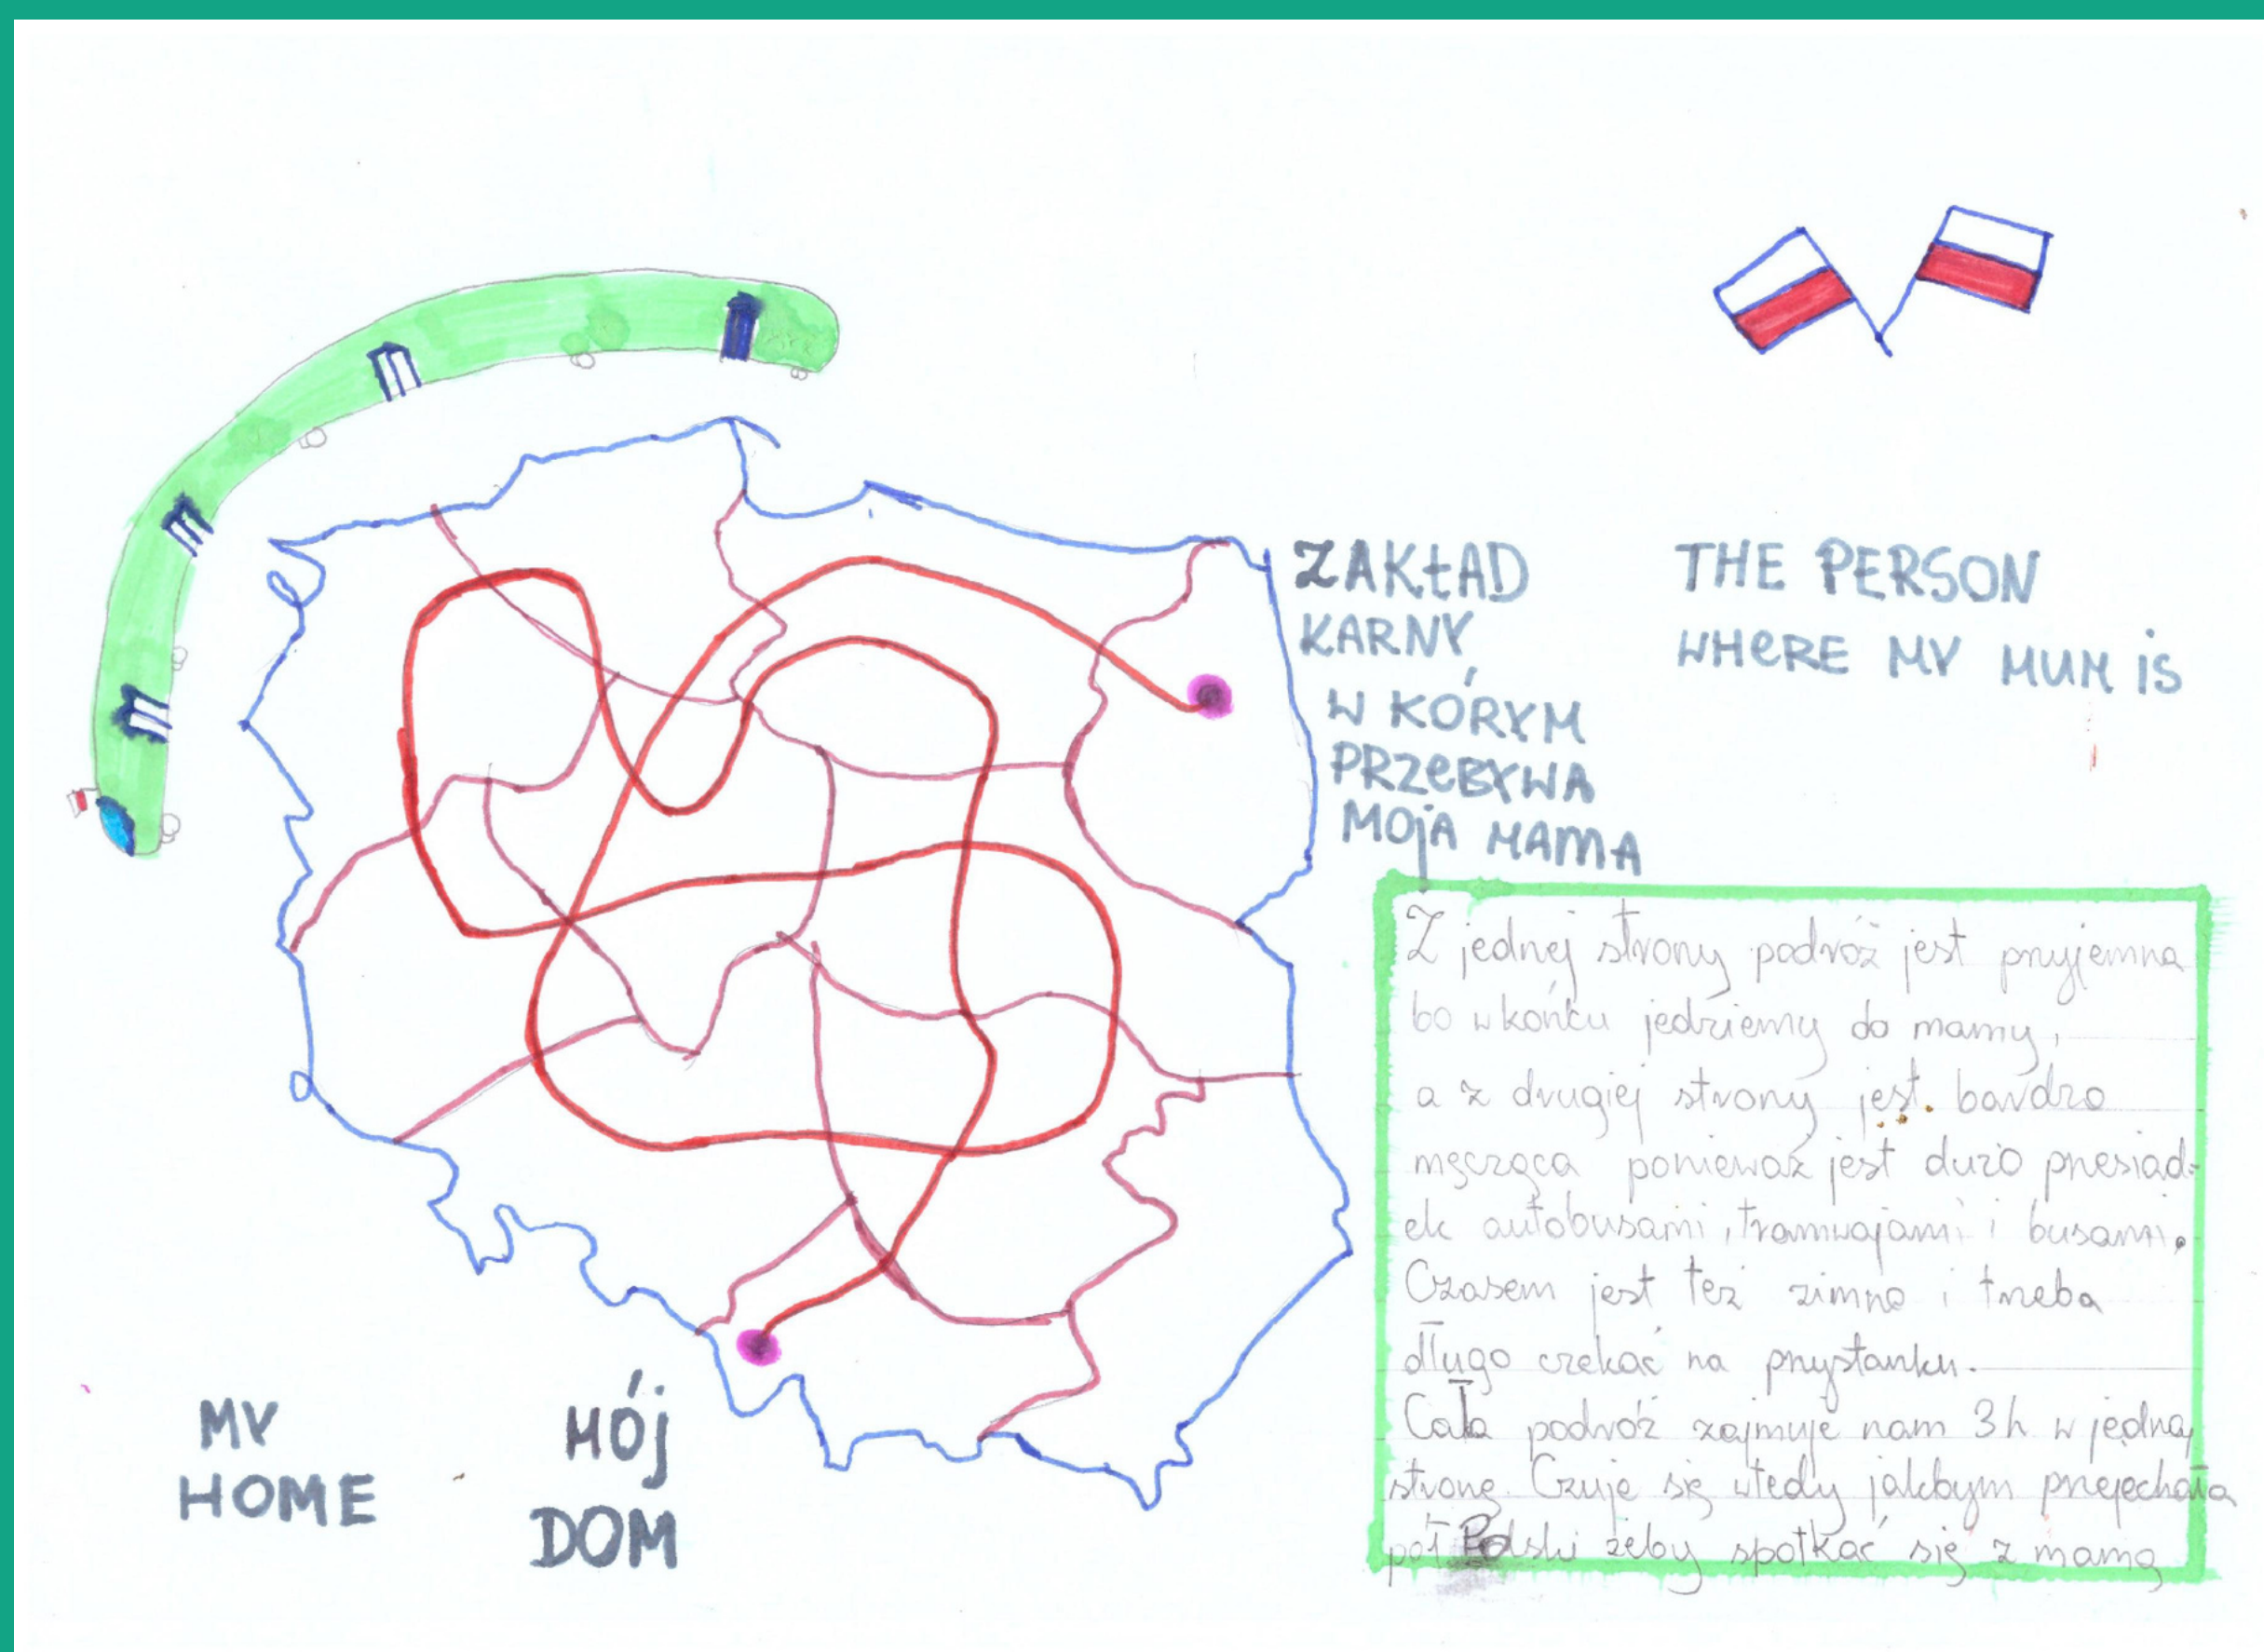 ZAKŁAD
KARNY,
W KÓRYM
PRZEBYWA
MOJA MAMA
THE PERSON
WHERE MY MUM IS
Z jednej strony podróż jest przyjemna
bo w końcu jedziemy do mamy,
a z drugiej strony jest bardzo
męcząca ponieważ jest dużo przesiad-
ek autobusami, tramwajami i busami.
Czasem jest też zimno i trzeba
długo czekać na przystanku.
Cała podróż zajmuje nam 3h w jedną
stronę. Czuję się wtedy jakbym przejechała
pół Polski żeby spotkać się z mamą
MY
HOME
MÓJ
DOM